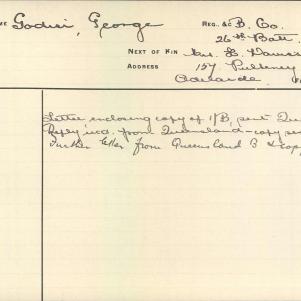 Godisi, George
REG. &c B. Co.
26th Batt.
NEXT OF KIN Mrs. E.
ADDRESS 157 Pulteney
Adelaide
Letter enclosing copy of 1/B, sent
Reply rec'd. from Queensland - copy
Further letter from Queensland B & cop